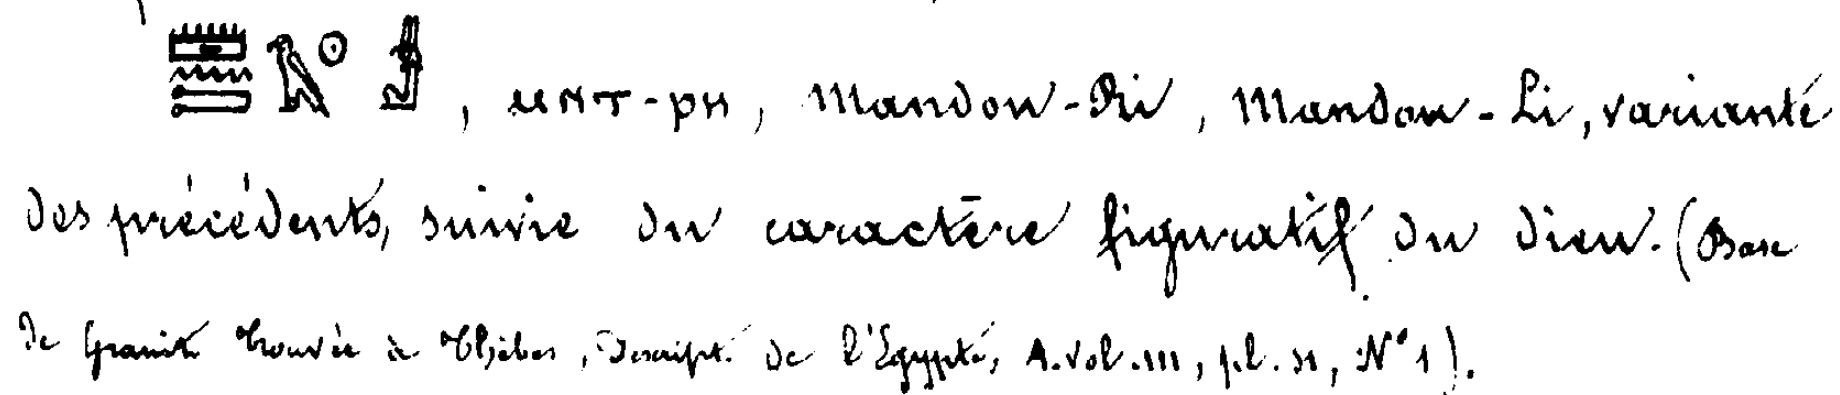 , ⲙⲛⲧ-ⲣⲏ, Mandou-Ri, Mandou-Li, variante
des précédents, suivie du caractère figuratif du dieu. (Base
de Granit trouvée à Thèbes, Descript. de l'Égypte, A. vol. III, pl. 31, N° 1).